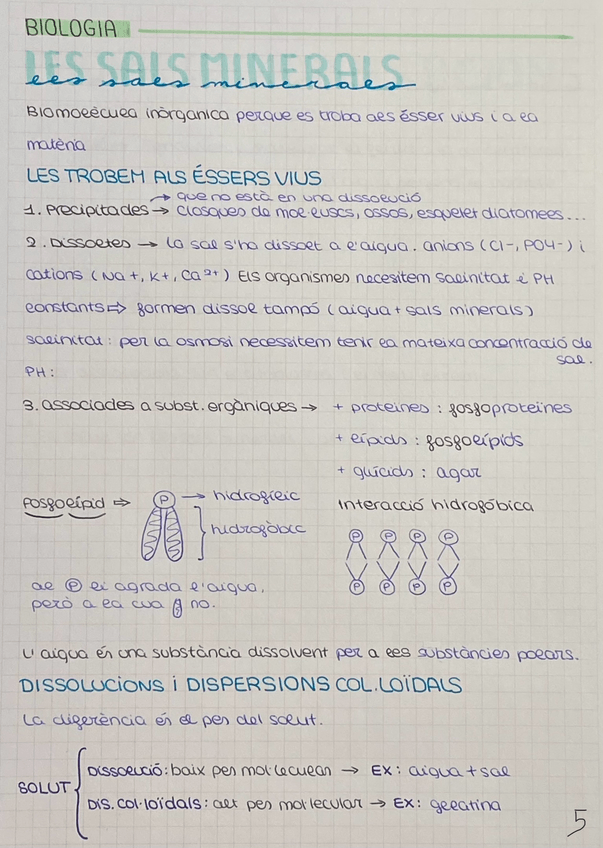 BIOLOGIA
LES SALS MINERALS
les sals minerals
Biomolècula inòrganica perque es troba als ésser vius i a la
matèria
LES TROBEM ALS ÉSSERS VIUS
→ que no està en una dissolució
1. Precipitades → closques de mol·luscs, ossos, esquelet diatomees...
2. Dissoltes → la sal s'ha dissolt a l'aigua. anions (Cl-, PO4-) i
cations (Na+, K+, Ca2+) Els organismes necesitem salinitat i PH
constants ⇒ formen dissol tampó (aigua + sals minerals)
salinitat: per la osmosi necessitem tenir la mateixa concentracció de
sal.
PH:
3. associades a subst. orgàniques → + proteïnes : fosfoproteïnes
+ lípids : fosfolípids
+ glúcids : agar
Fosfolípid ⇒ P → hidrofílic
hidrofòbic
Interacció hidrofóbica
P P P P
P P P P
al P li agrada l'aigua,
però a la cua no.
L'aigua és una substància dissolvent per a les substàncies polars.
DISSOLUCIONS i DISPERSIONS COL.LOÏDALS
La diferència és el pes del solut.
SOLUT
Dissolució: baix pes mol·lecular → EX: aigua + sal
Dis. col·loïdals: alt pes mol·lecular → EX: gelatina
5